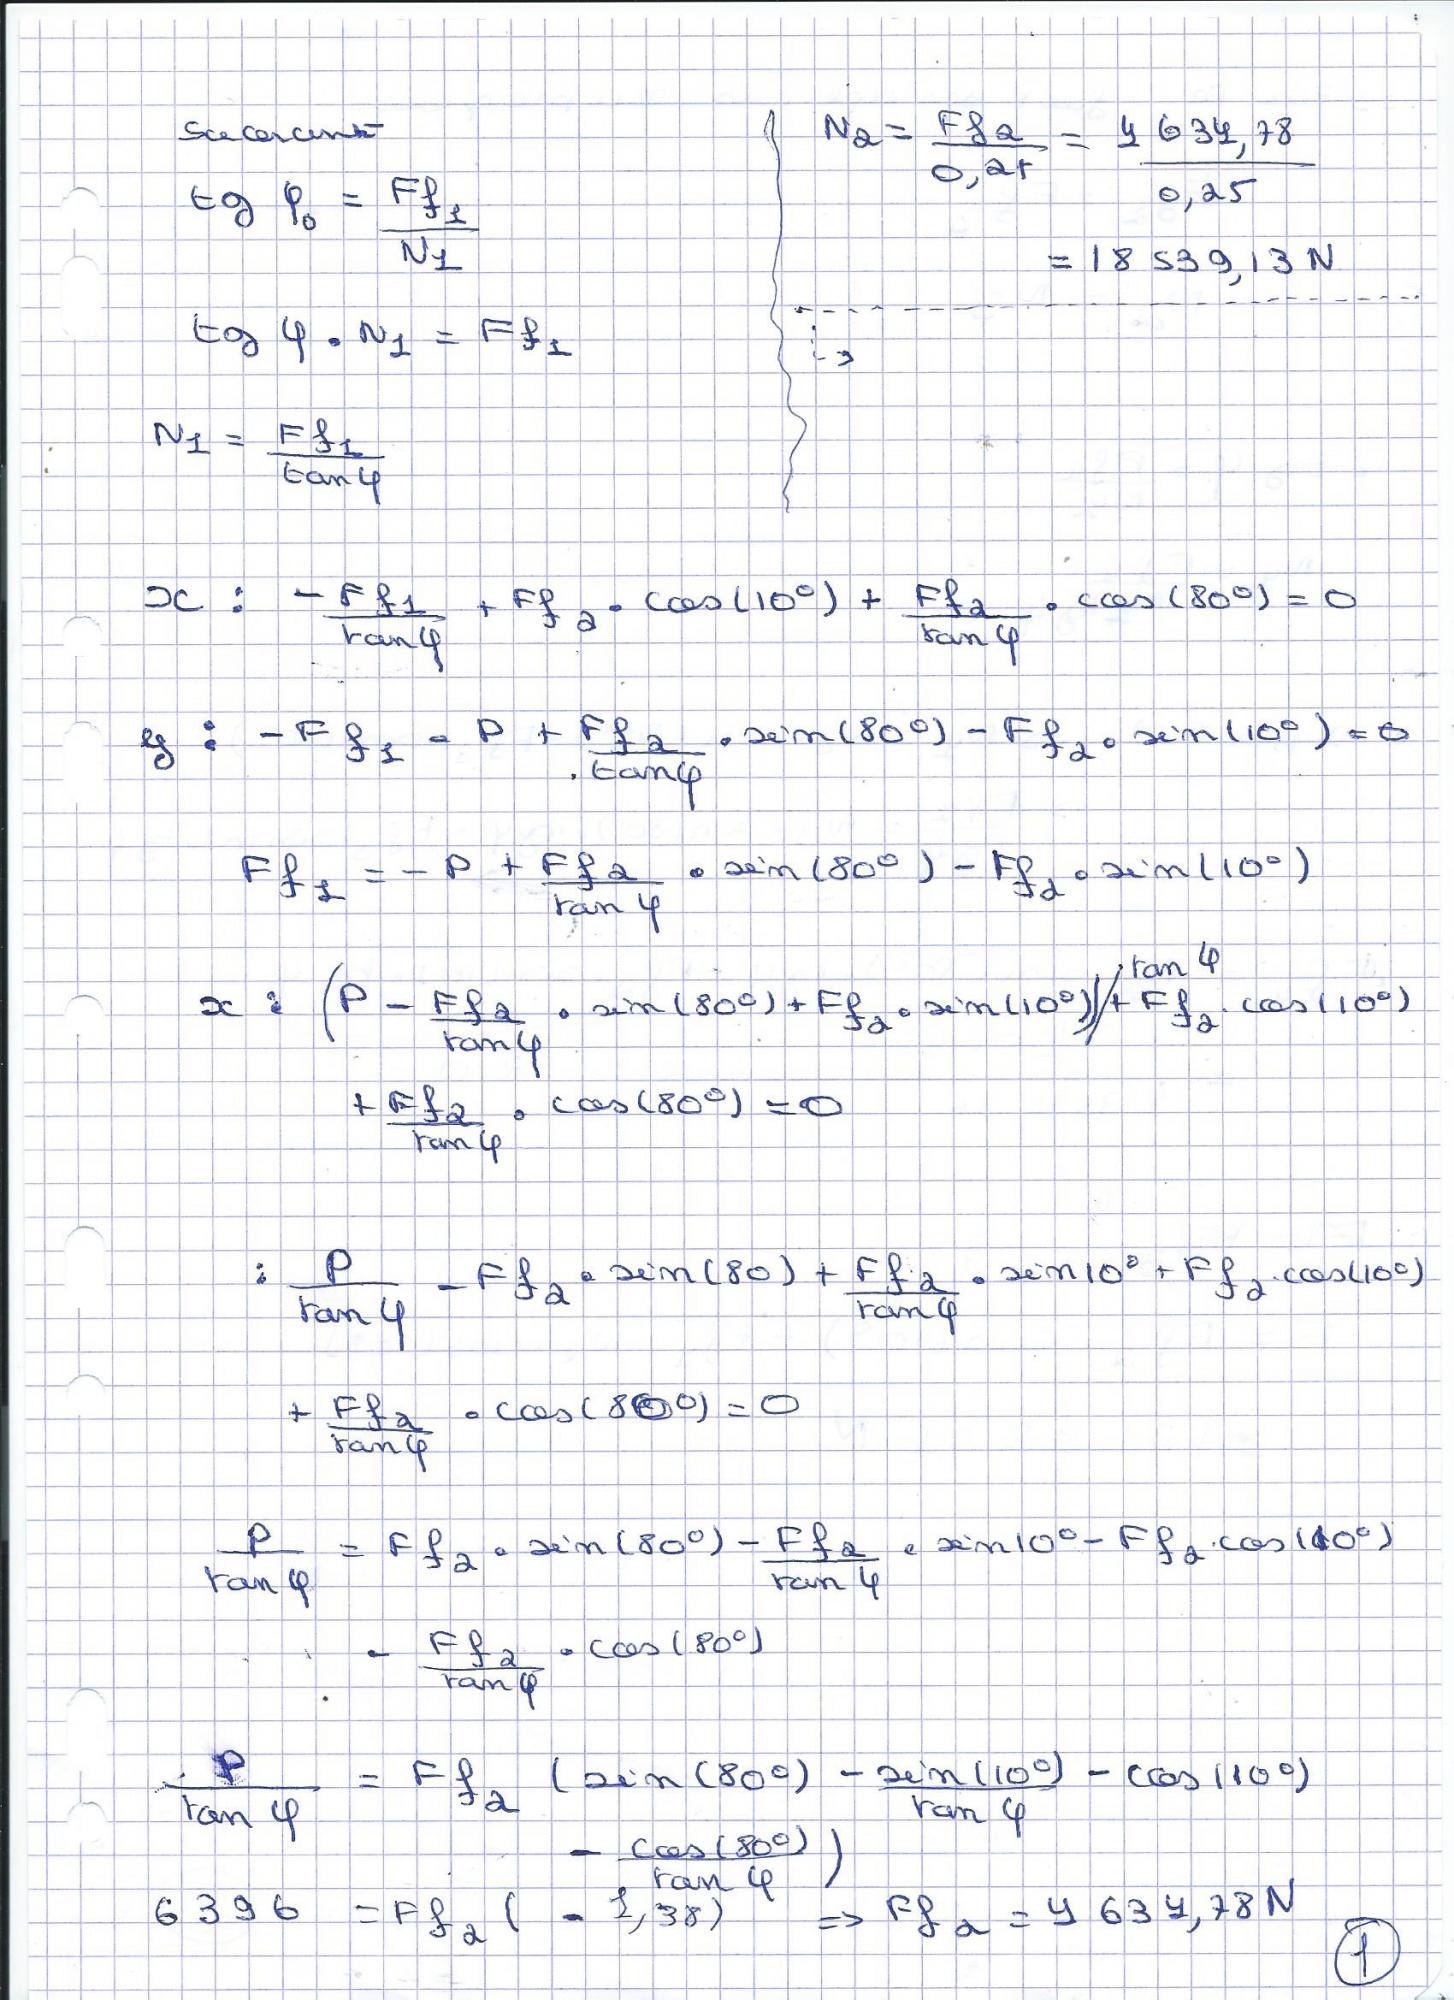 tg φ₀ = Ff₁ / N₁
tg φ . N₁ = Ff₁
N₁ = Ff₁ / tan φ
N₂ = Ff₂ / 0,25 = 4 634,78 / 0,25
= 18 539,13 N
x : - Ff₁ / tan φ + Ff₂ . cos(10°) + Ff₂ / tan φ . cos(80°) = 0
y : - Ff₁ - P + Ff₂ / tan φ . sin(80°) - Ff₂ . sin(10°) = 0
Ff₁ = - P + Ff₂ / tan φ . sin(80°) - Ff₂ . sin(10°)
x : (P - Ff₂ / tan φ . sin(80°) + Ff₂ . sin(10°)) / tan φ + Ff₂ . cos(10°)
+ Ff₂ / tan φ . cos(80°) = 0
: P / tan φ - Ff₂ . sin(80) + Ff₂ / tan φ . sin 10° + Ff₂ . cos(10°)
+ Ff₂ / tan φ . cos(80°) = 0
P / tan φ = Ff₂ . sin(80°) - Ff₂ / tan φ . sin 10° - Ff₂ . cos(10°)
- Ff₂ / tan φ . cos(80°)
P / tan φ = Ff₂ (sin(80°) - sin(10°) / tan φ - cos(10°)
- cos(80°) / tan φ)
6396 = Ff₂ ( - 1,38) => Ff₂ = 4 634,78 N
1